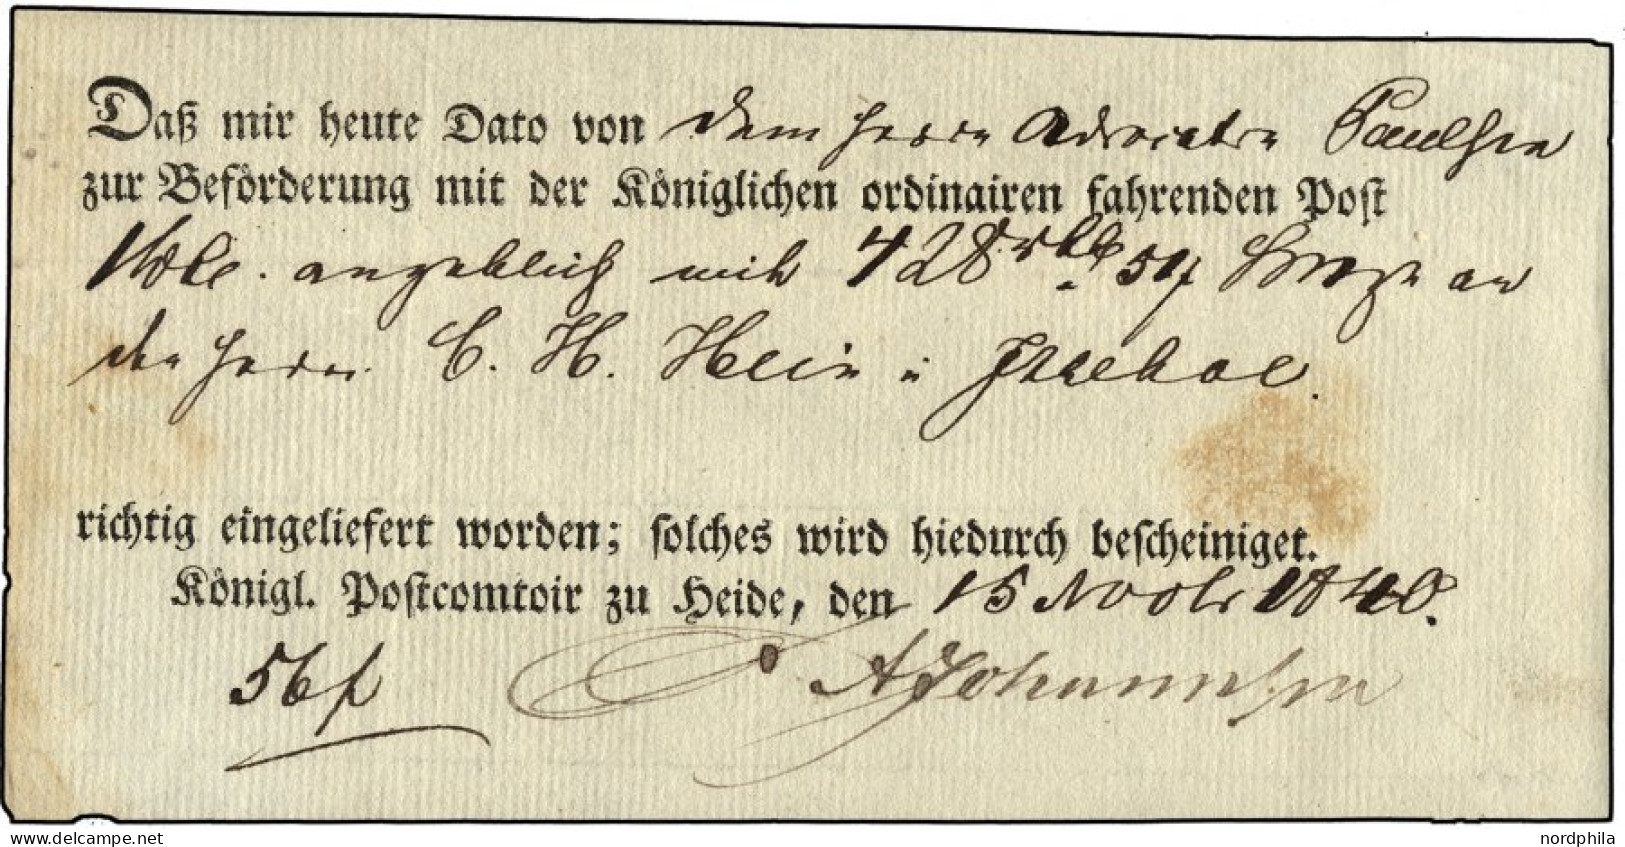 Daß mir heute Dato von dem Herrn Advocaten Paulsen
zur Beförderung mit der Königlichen ordinairen fahrenden Post
angeblich mit 428 rbth an
den Herrn C. H. Hein in Itzehoe.
richtig eingeliefert worden; solches wird hiedurch bescheiniget.
Königl. Postcomtoir zu Heide, den 15 Novbr 1840.
56 f Johannsen
© delcampe.net
nordphila